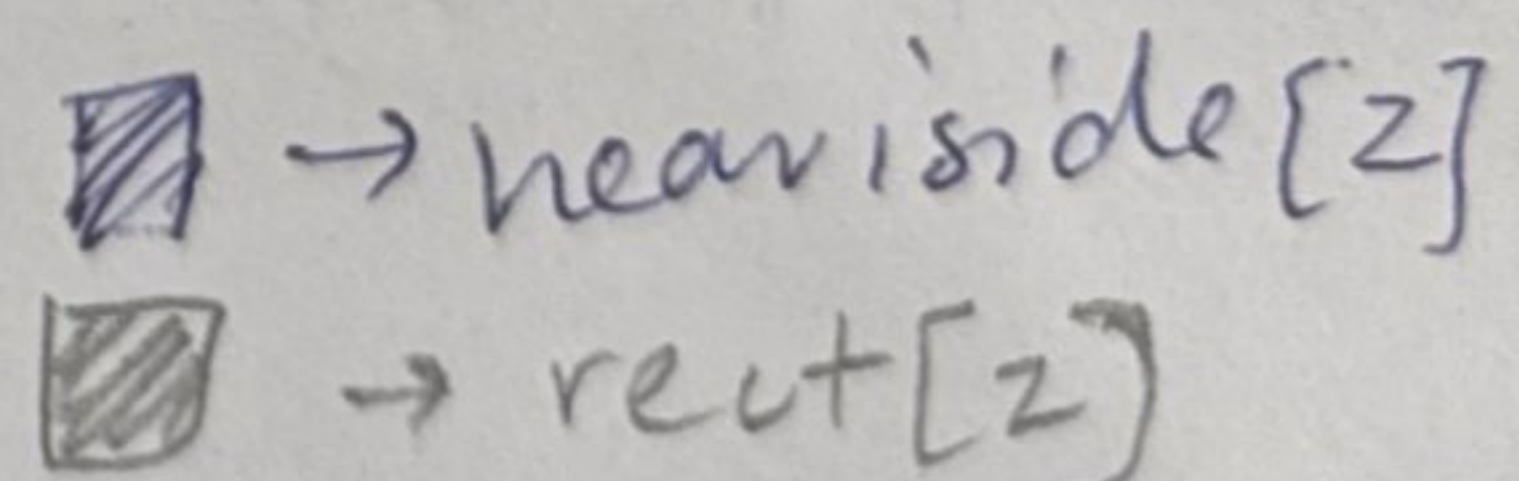 → heaviside[z]
→ rect[z]